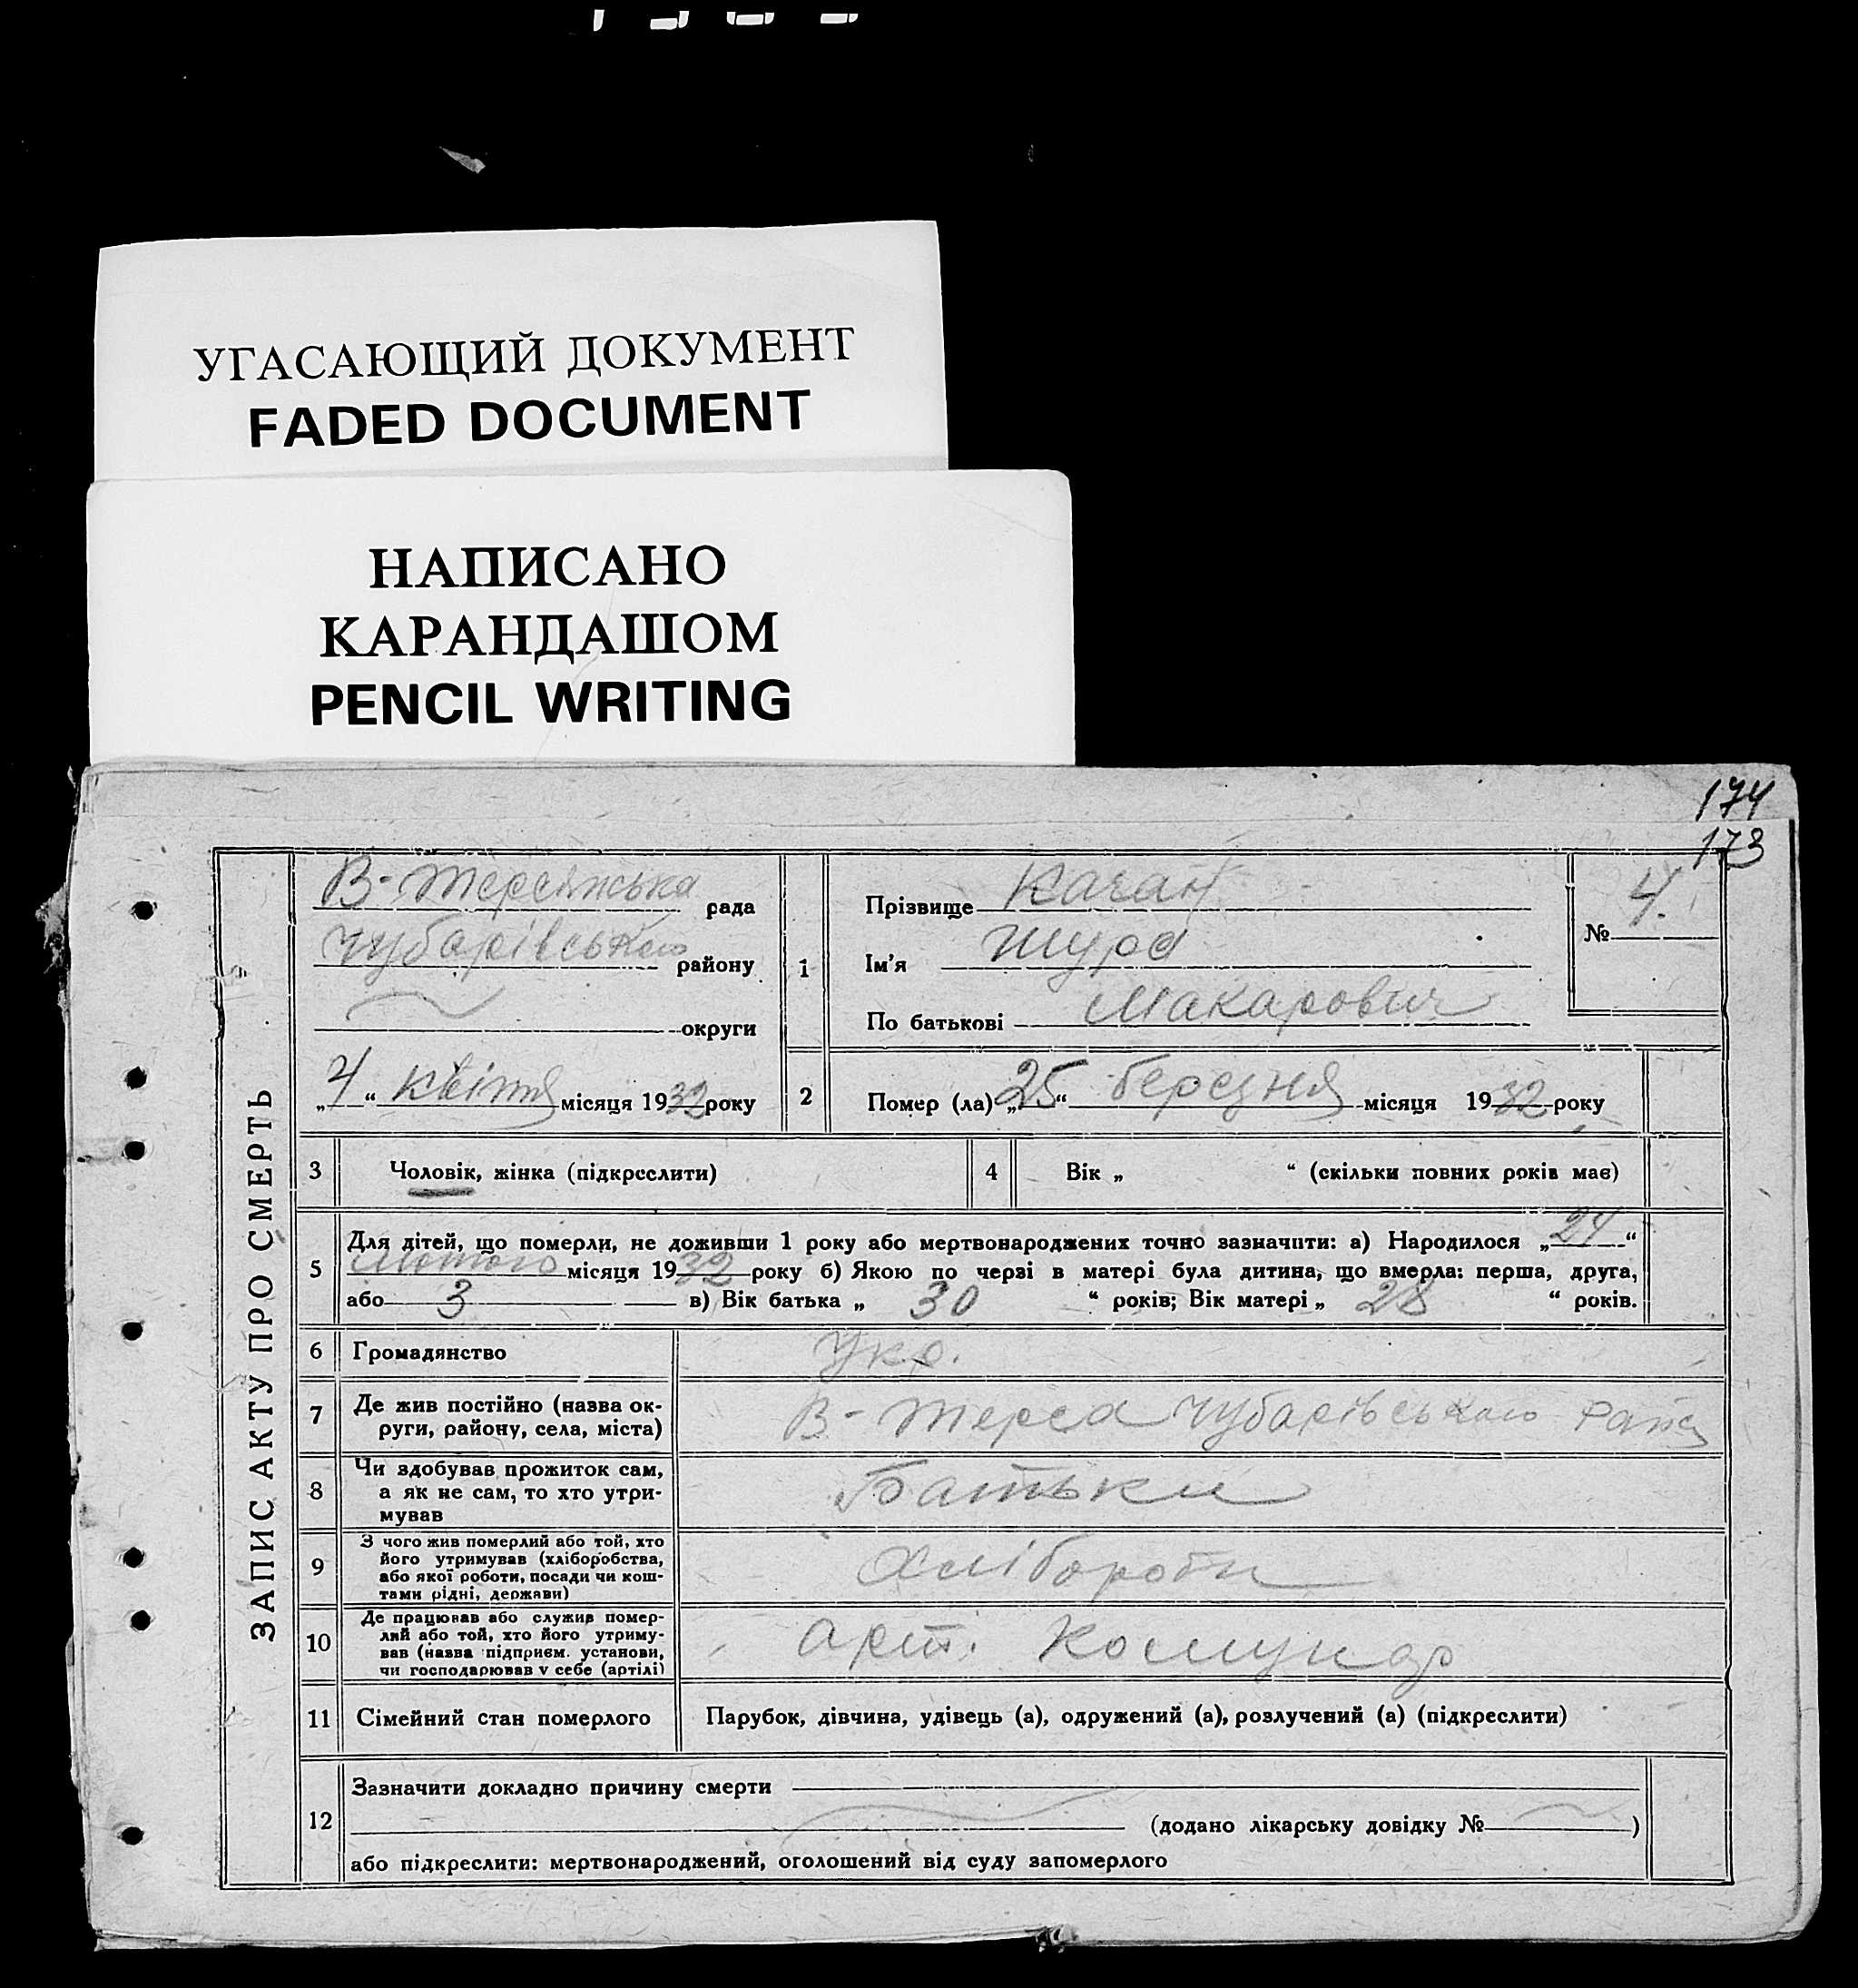 УГАСАЮЩИЙ ДОКУМЕНТ
FADED DOCUMENT
НАПИСАНО
КАРАНДАШОМ
PENCIL WRITING
174
173
ЗАПИС АКТУ ПРО СМЕРТЬ
В-Терсянська рада
Чубарівського району
округи
„4“ квітня місяця 1932 року
1
Прізвище Качан
Ім'я Шура
По батькові Макарович
№ 4.
2
Помер (ла) „25“ березня місяця 1932 року
3
Чоловік, жінка (підкреслити)
4
Вік „ “ (скільки повних років має)
5
Для дітей, що померли, не доживши 1 року або мертвонароджених точно зазначити: а) Народилося „24“
лютого місяця 1932 року б) Якою по черзі в матері була дитина, що вмерла: перша, друга,
або 3 в) Вік батька „ 30 “ років; Вік матері „ 28 “ років.
6
Громадянство
Укр.
7
Де жив постійно (назва ок-
руги, району, села, міста)
В-Терса Чубарівського
8
Чи здобував прожиток сам,
а як не сам, то хто утри-
мував
Батьки
9
З чого жив померлий або той, хто
його утримував (хліборобства,
або якої роботи, посади чи кош-
тами рідні, держави)
10
Де працював або служив помер-
лий або той, хто його утриму-
вав (назва підприєм. установи,
чи господарював у себе (артілі)
арт. Комунар
11
Сімейний стан померлого
Парубок, дівчина, удівець (а), одружений (а), розлучений (а) (підкреслити)
12
Зазначити докладно причину смерти
(додано лікарську довідку № )
або підкреслити: мертвонароджений, оголошений від суду запомерлого